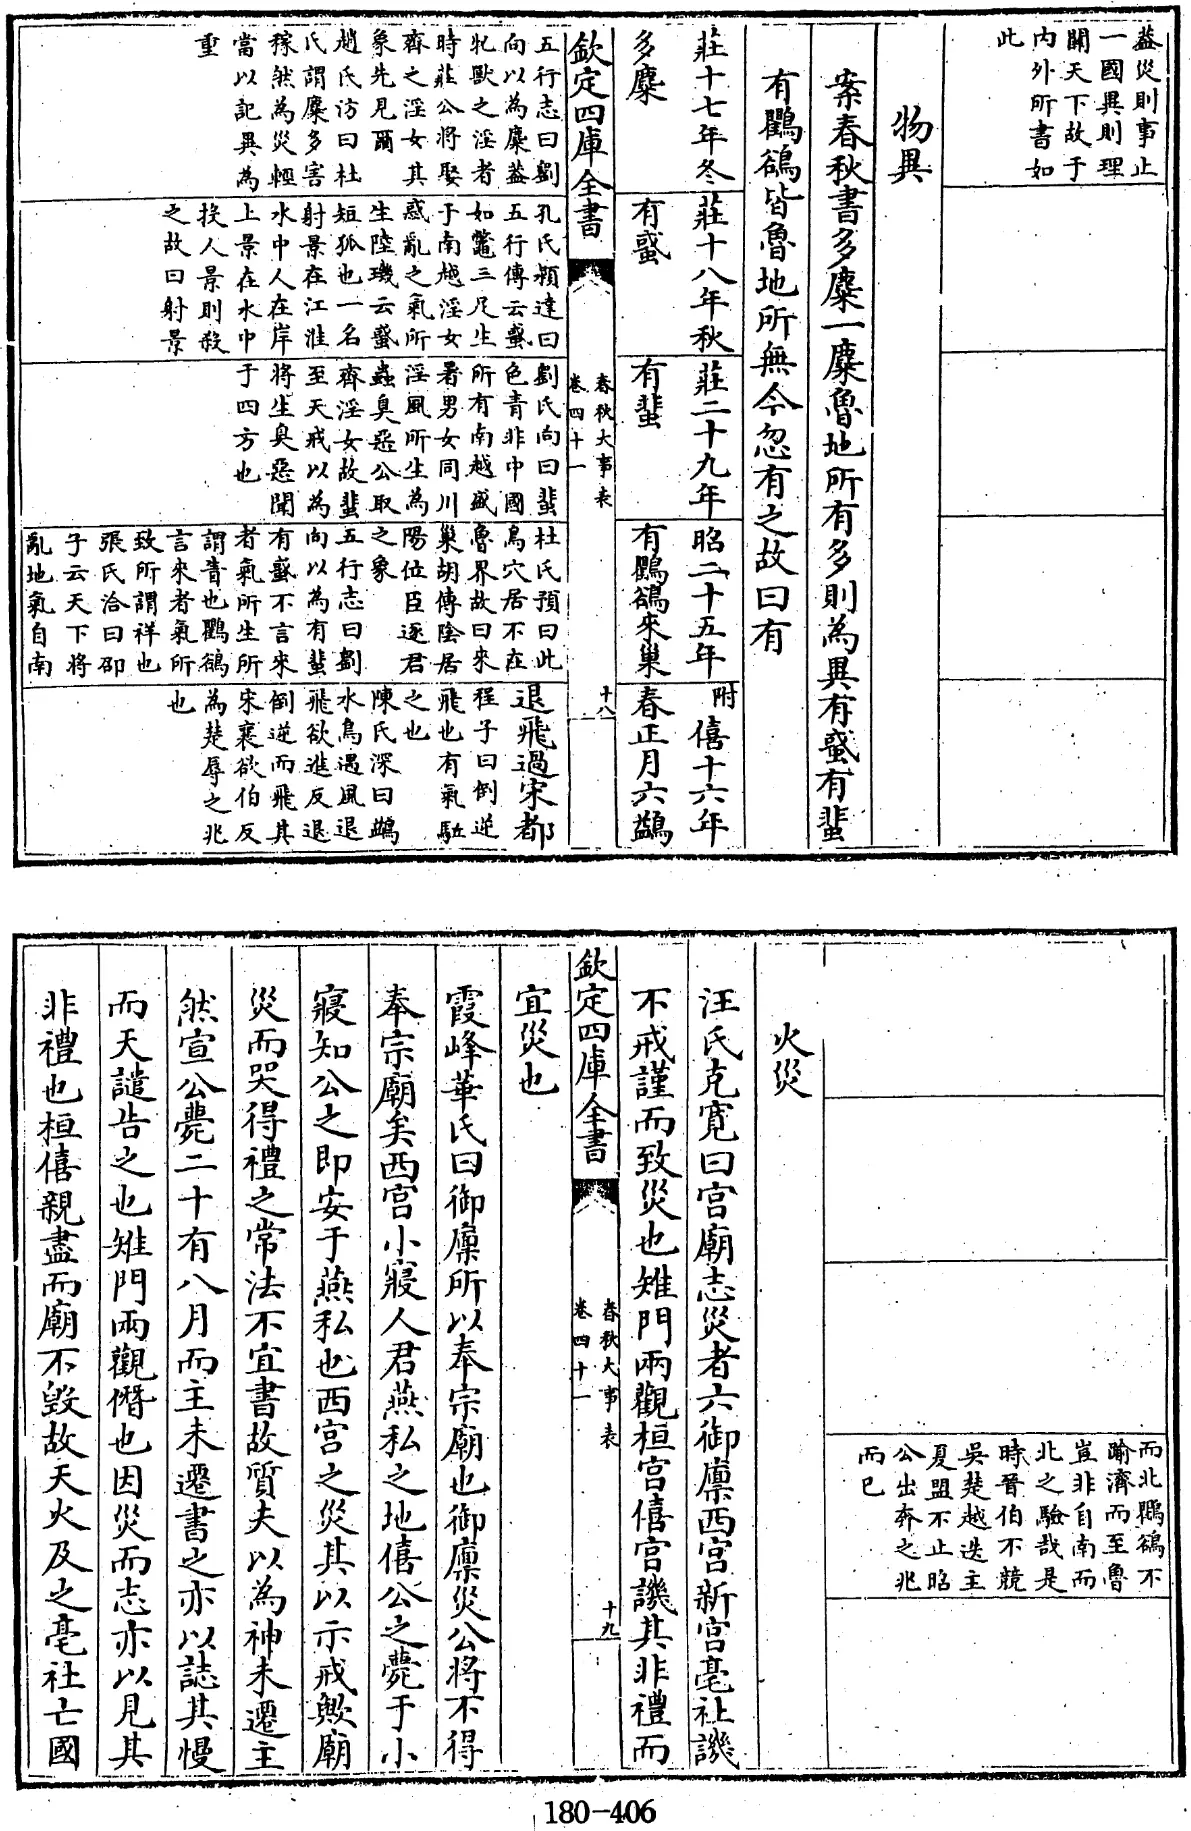 葢災則事止
一國異則理
關天下故于
内外所書如
此
物異
案春秋書多麋一麋魯地所有多則為異有蜮有蜚
有鸜鵒皆魯地所無今忽有之故曰有
莊十七年冬
多麋
莊十八年秋
有蜮
莊二十九年
有蜚
昭二十五年
有鸜鵒來巢
附 僖十六年
春正月六鷁
欽定四庫全書
春秋大事表
卷四十一
十八
五行志曰劉
向以為麋葢
牝獸之淫者
時莊公將娶
齊之淫女其
象先見爾
趙氏汸曰杜
氏謂麋多害
稼然為災輕
當以記異為
重
孔氏穎達曰
五行傳云蜮
如鼈三足生
于南越淫女
惑亂之氣所
生陸璣云蜮
短狐也一名
射景在江淮
水中人在岸
上景在水中
投人景則殺
之故曰射景
劉氏向曰蜚
色青非中國
所有南越盛
暑男女同川
淫風所生為
蟲臭惡公取
齊淫女故蜚
至天戒以為
將生臭惡聞
于四方也
杜氏預曰此
鳥穴居不在
魯界故曰來
巢胡傳陰居
陽位臣逐君
之象
五行志曰劉
向以為有蜚
有蜮不言來
者氣所生所
謂眚也鸜鵒
言來者氣所
致所謂祥也
張氏洽曰邵
子云天下將
亂地氣自南
退飛過宋都
程子曰倒逆
飛也有氣駈
之也
陳氏深曰鷁
水鳥遇風退
飛欲進反退
倒逆而飛其
宋襄欲伯反
為楚辱之兆
也
而北鸜鵒不
踰濟而至魯
豈非自南而
北之驗哉是
時晉伯不競
吳楚越迭主
夏盟不止昭
公出奔之兆
而已
火災
汪氏克寛曰宫廟志災者六御廩西宫新宫亳社譏
不戒謹而致災也雉門兩觀桓宫僖宫譏其非禮而
欽定四庫全書
春秋大事表
卷四十一
十九
宜災也
霞峰華氏曰御廩所以奉宗廟也御廩災公將不得
奉宗廟矣西宫小寢人君燕私之地僖公之薨于小
寢知公之即安于燕私也西宫之災其以示戒歟廟
災而哭得禮之常法不宜書故質夫以為神未遷主
然宣公薨二十有八月而主未遷書之亦以誌其慢
而天譴告之也雉門兩觀僭也因災而志亦以見其
非禮也桓僖親盡而廟不毁故天火及之亳社亡國
180-406